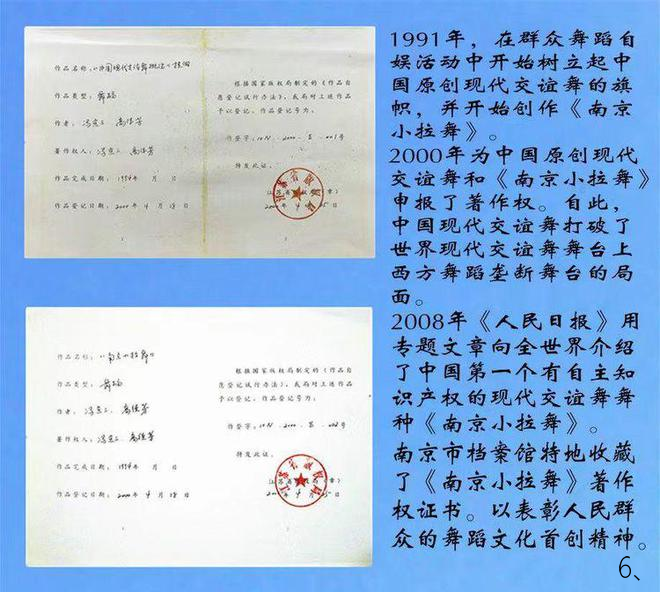 作品类型：舞蹈
作品完成日期：1994年 月 日
作品登记日期：2000年4月18日
根据国家版权局制定的《作品自
愿登记试行办法》，我局对上述作品
予以登记，作品登记号为：
特发此证。
作品名称：《南京小拉舞》
作品类型：舞蹈
作者：
著作权人：
作品完成日期：1994年 月 日
作品登记日期：2000年4月18日
根据国家版权局制定的《作品自
愿登记试行办法》，我局对上述作品
予以登记，作品登记号为：
特发此证。
1991年，在群众舞蹈自
娱活动中开始树立起中
国原创现代交谊舞的旗
帜，并开始创作《南京
小拉舞》。
2000年为中国原创现代
交谊舞和《南京小拉舞》
申报了著作权。自此，
中国现代交谊舞打破了
世界现代交谊舞舞台上
西方舞蹈垄断舞台的局
面。
2008年《人民日报》用
专题文章向全世界介绍
了中国第一个有自主知
识产权的现代交谊舞舞
种《南京小拉舞》。
南京市档案馆特地收藏
了《南京小拉舞》著作
权证书。以表彰人民群
众的舞蹈文化首创精神。
6、